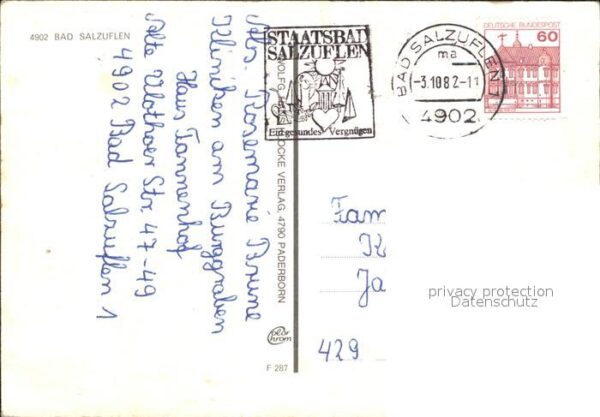 4902 BAD SALZUFLEN
Abs. Rosemarie Brune
Kliniken am Burggraben
Haus Tannenhof
Alte Vlothoer Str. 47-49
4902 Bad Salzuflen 1
STAATSBAD
SALZUFLEN
Ein gesundes Vergnügen
BAD SALZUFLEN 1
ma
-3.10.82-11
4902
DEUTSCHE BUNDESPOST
60
VERLAG, 4790 PADERBORN
F 287
Fam
Ja
429
privacy protection
Datenschutz